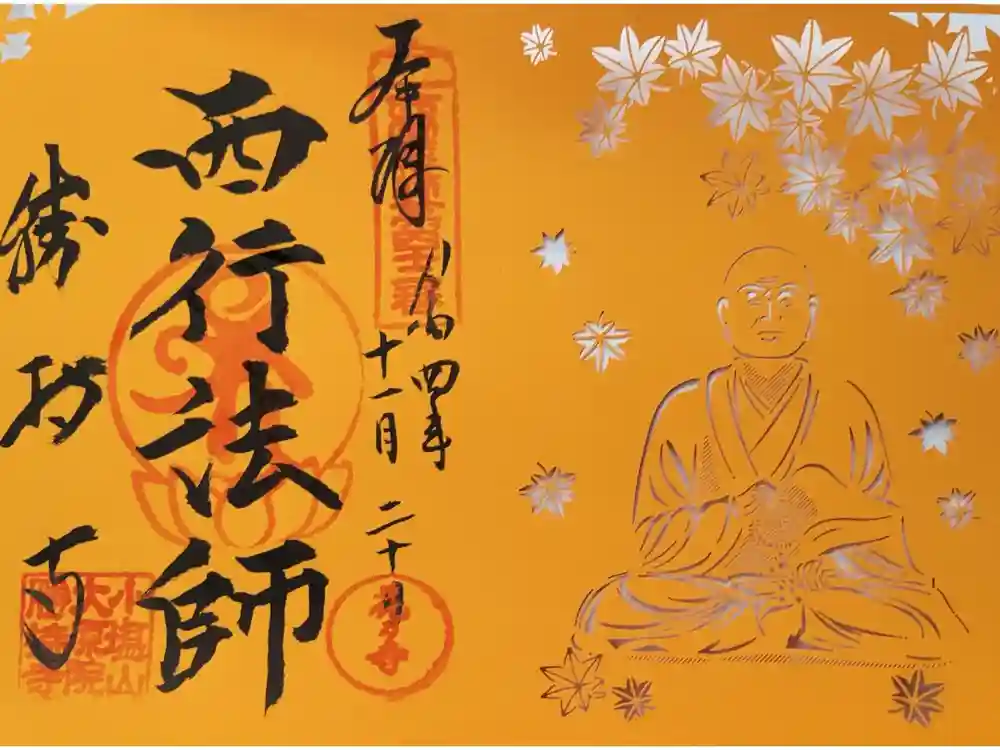 奉拝
令和四年
十一月二十日
花の寺
西行法師
勝持寺
小塩山
大原院
勝持寺